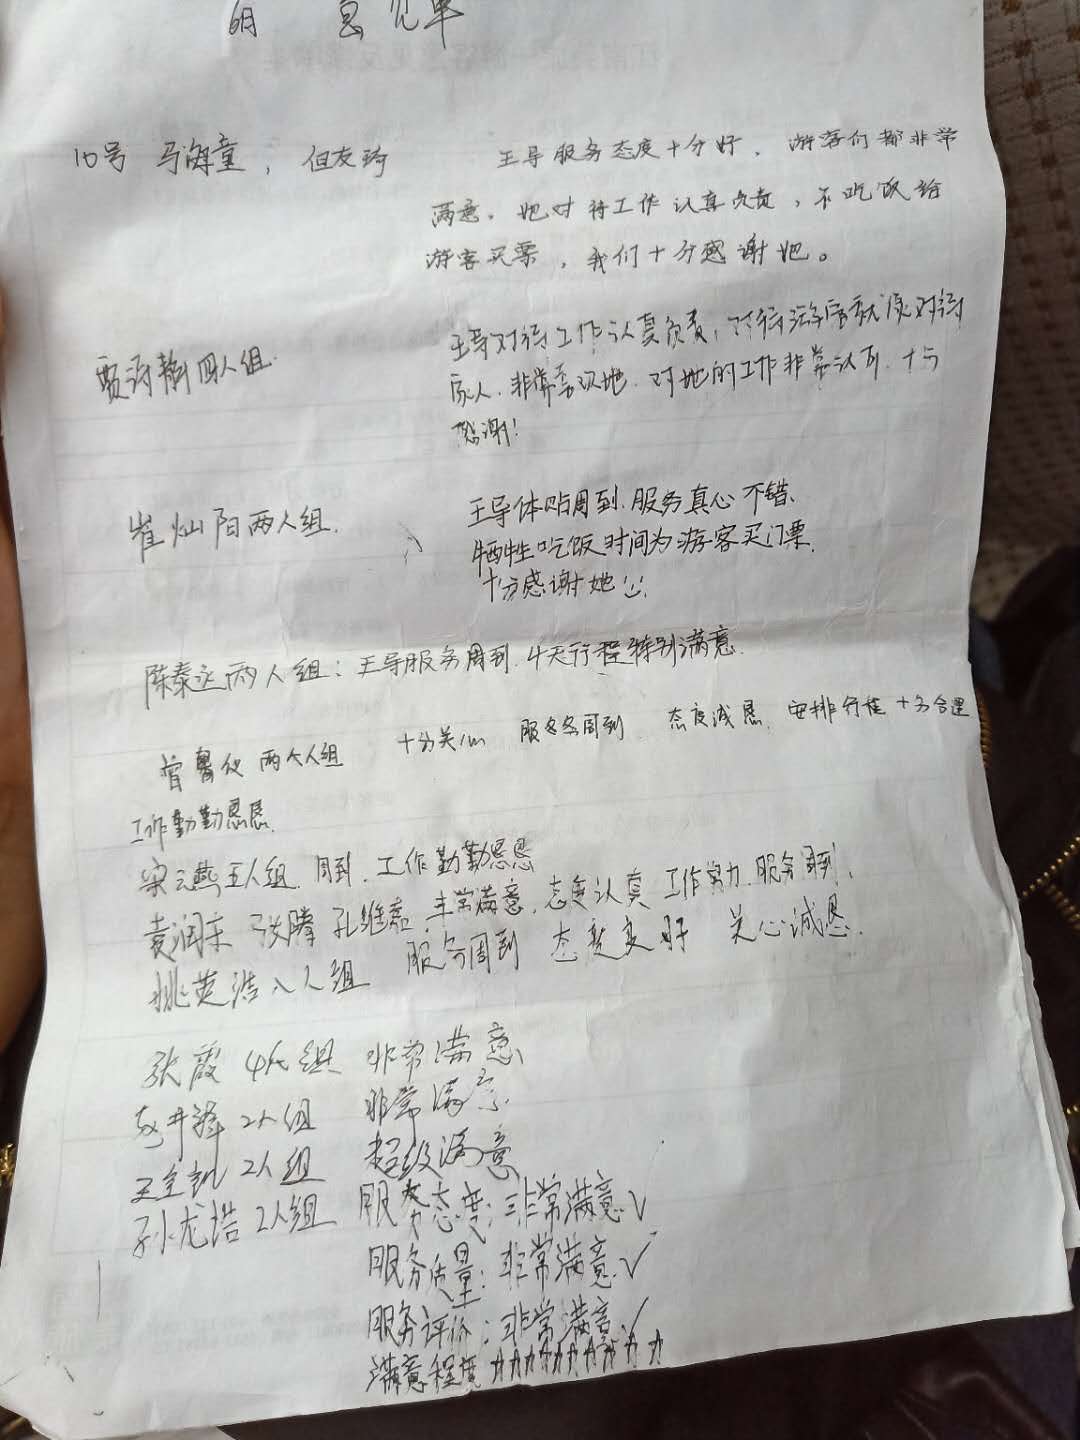 意见单
10号 马海童，但友琦 王导服务态度十分好，游客们都非常
满意。她对待工作认真负责，不吃饭给
游客买票，我们十分感谢她。
贾诗 四人组. 王导对待工作认真负责，对待游客就像对待
家人.非常喜欢她.对她的工作非常认可.十分
感谢！
崔灿阳两人组. 王导体贴周到.服务真心不错、
牺牲吃饭时间为游客买门票.
十分感谢她
陈泰运两人组：王导服务周到.4天行程特别满意.
曾粤仪 两个人组 十分关心 服务周到 态度诚恳.安排行程十分合理
工作勤勤恳恳.
宋云燕五人组.周到.工作勤勤恳恳
袁润东 张腾 孔维嘉.非常满意.态度认真 工作努力.服务周到.
姚英浩八人组 服务周到 态度良好 关心诚恳.
张霞 4人组 非常满意
2人组 非常满意
2人组 超级满意
孙龙浩 2人组 服务态度：非常满意.✓
服务质量：非常满意.✓
服务评价：非常满意.✓
满意程度